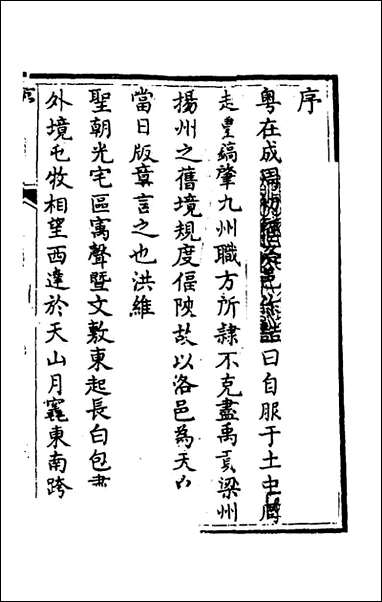 序
粤在成周初經洛邑以誥曰自服于土中厥
走豐鎬肇九州職方所隸不克盡禹貢梁州
揚州之舊境規度偪陿故以洛邑為天
當日版章言之也洪維
聖朝光宅區寓聲暨文敷東起長白包
外境屯牧相望西達於天山月竁東南跨